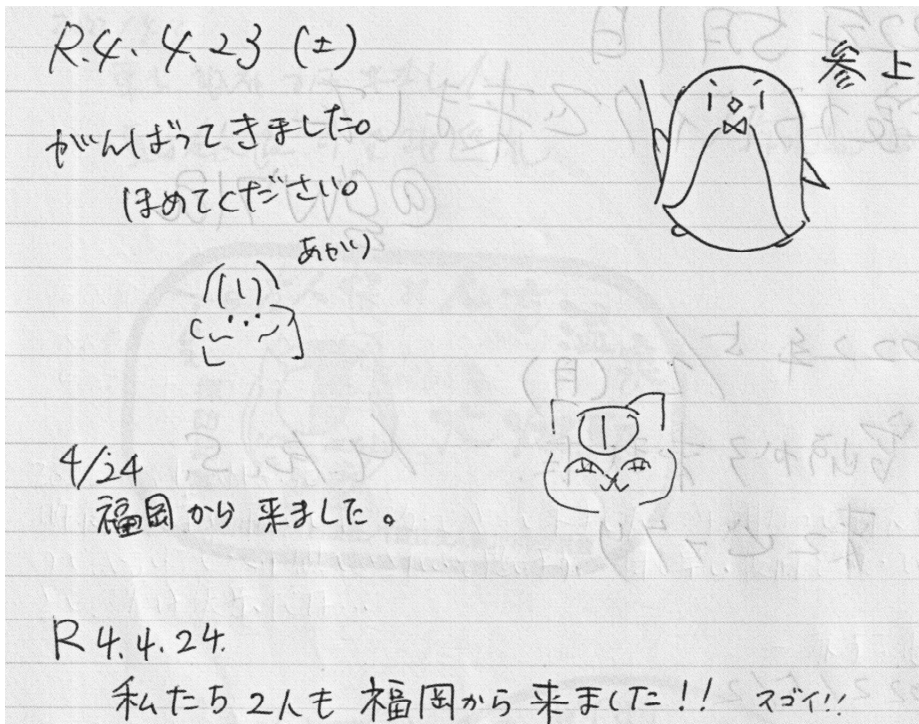 R.4. 4.23 (土)
参上
がんばってきました。
ほめてください。
あかり
4/24
福岡から来ました。
R 4.4.24.
私たち2人も福岡から来ました!! スゴイ!!